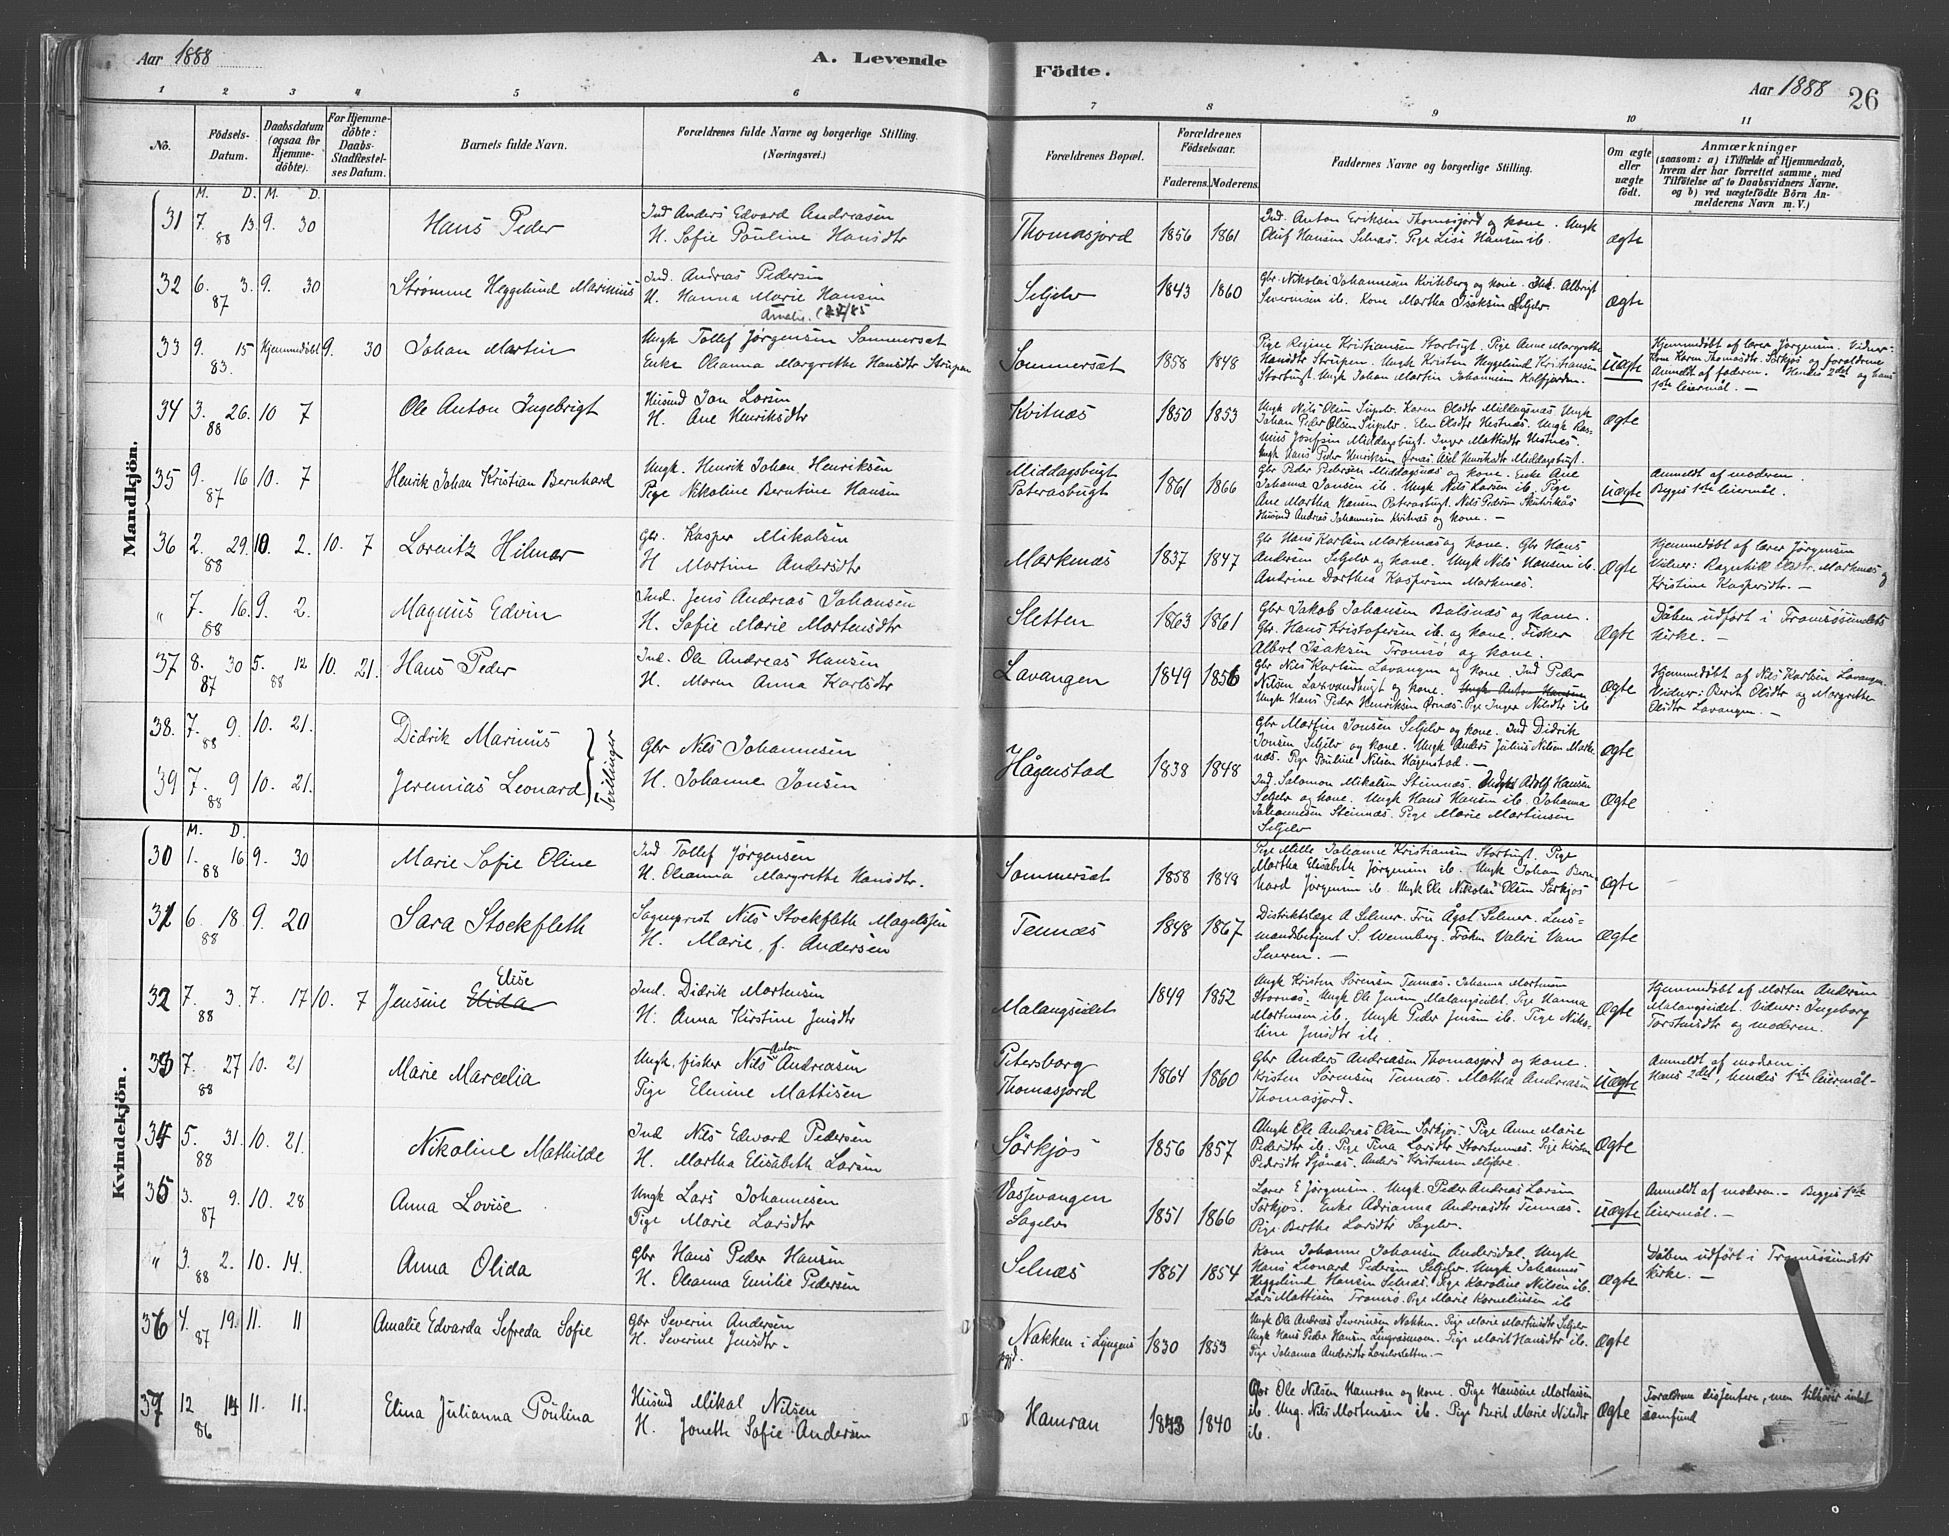 Aar 1888
A. Levende
Födte.
Aar 1888
26
1 2 3 4 5 6 7 8 9 10 11
No.
Födsels-
Datum.
Daabsdatum
(ogsaa for
Hjemme-
döbte).
For Hjemme-
döbte:
Daabs-
Stadfæstel-
ses Datum.
Barnets fulde Navn.
Forældrenes fulde Navne og borgerlige Stilling.
(Næringsvei.)
Forældrenes Bopæl.
Forældrenes
Födselsaar.
Faderens. Moderens.
Faddernes Navne og borgerlig Stilling.
Om ægte
eller
uægte
födt.
Anmærkninger
(saasom: a) i Tilfælde af Hjemmedaab,
hvem der har forrettet samme, med
Tilföielse af to Daabsvidners Navne,
og b) ved uægtefödte Börn An-
melderens Navn m. V.)
Mandkjön.
M. D. M. D.
31 7. 13. 9. 30 Hans Peder
88
Ind Anders Edvard Andreasen
H. Sofie Pauline Hansdtr
Thomasjord 1856 1861
Ind. Anton Eriksen Thomasjord og kone. Ungk
Oluf Hansen Selnæs. Pige Lise Hansen ib.
ægte
32 6. 3. 9. 30 Strømme Heggelund Marinius
87
Ind. Andreas Pedersen
H. Hanna Marie Hansen
Seljelv 1843 1860
Gbr. Nikolai Johannesen Kviteberg og kone. Albrigt
Severinsen ib. Kone Martha Isaksen Seljelv
Ægte
33 9. 15 Hjemmedøbt 9. 30 Johan Martin
83.
Ungk Tollef Jørgensen Sommersæt
Enke Oleanna Margrethe Hansdtr Strupen
Sommersæt 1858 1848
Pige Regine Kristiansen Storbugt. Pige Anne Margrethe
Hansdtr Strupen. Ungk Kristen Heggelund Kristiansen
Storbugt. Ungk Johan Martin Johannesen Kalfjorden.
uægte
Hjemmedøbt af lærer Jørgensen. Vidner:
Kone Karen Thomasdtr. Sørkjos og forældrene
Anmeldt af faderen. Hendes 2det og hans
1ste leiermål. —
34 3. 26. 10 7 Ole Anton Ingebrigt
88
Husmd Jon Larsen
H. Ane Henriksdtr
Kvitnæs 1850 1853
Ungk Nils Olsen Seljelv. Karen Olsdtr Middagsnæs Ungk
Johan Peder Olsen Seljelv. Elen Olsdtr Vestnæs. Ungk Ras-
mus Josefsen Middagsbugt. Inger Mathisdtr Vestnæs.
Ungk Hans Peder Henriksen Ørnæs. Henriksdtr Middagsbugt.
ægte
35 9. 16 10. 7 Henrik Johan Kristian Bernhard
87
Ungk. Henrik Johan Henriksen
Pige Nikoline Berntine Hansen
Middagsbugt
Paterasbugt
1861 1866
Gbr Peder Pedersen Middagsnæs og kone. Enke Ane
Johanna Jonsen ib. Ungk Nils Larsen ib. Pige
Ane Martha Hansen Paterasbugt.
Husmd Andreas Johannesen Kvitnæs og kone. —
uægte
Anmeldt af moderen.
Begges 1ste leiermål.
36 2. 29. 10. 2. 10. 7 Lorentz Hilmar
88
Gbr. Kasper Mikalsen
H Martine Andersdtr
Markenæs 1837 1847
Gbr Hans Karlsen Markenæs og kone. Gbr Hans
Andersen Seljelv og kone. Ungk Nils Hansen ib.
Andrine Dorthea Kaspersen Markenæs.
Ægte
Hjemmedøbt af lærer Jørgensen
Vidner: Ragnhild Olsdtr. Markenæs og
Kristine Kaspersdtr. —
" 7. 16. 9. 2. Magnus Edvin
88
Ind. Jens Andreas Johansen
H. Sofie Marie Mortensdtr
Sletten 1863 1861
Gbr Jakob Johansen Balsnæs og kone.
Gbr. Hans Kristofersen ib. og kone. Fisker
Albert Isaksen Tromsø og kone.
Ægte
Dåben udført i Tromsøsundets
kirke. —
37 8. 30 5. 12 10. 21. Hans Peder
87 88
Ind. Ole Andreas Hansen
H. Maren Anna Karlsdtr
Lavangen 1849 1856
Gbr Nils Karlsen Lavangen og kone. Ind Peder
Nilsen og kone. Ungk Anton Hansen
Ungk Hans Peder Henriksen Ørnæs. Pige Inger Nilsdtr ib
Ægte
Hjemmedøbt af Nils Karlsen Lavangen.
Vidner: Berit Olsdtr og Margrethe
Olsdtr Lavangen. —
38. 7. 9. 10. 21. Didrik Marinus
88
39 7. 9 10. 21. Jeremias Leonard
88
Tvillinger
Gbr Nils Johannesen
H. Johanne Jonsen
Hågenstad 1838 1848
Gbr Martin Jonsen Seljelv og kone. Ind Didrik
Jonsen Seljelv og kone. Ungk Anders Julius Nilsen Marke-
næs. Pige Pauline Nilsen Hågenstad. —
ægte
Ind. Salamon Mikalsen Stennæs. Adolf Hansen
Seljelv og kone. Ungk Hans Hansen ib. Johanna
Johannesen Stennæs. Pige Marie Martinsen
Seljelv
Ægte
Kvindekjön.
M. D.
30 1. 16 9. 30 Marie Sofie Oline
88
Ind Tollef Jørgensen
H. Oleanna Margrethe Hansdtr.
Sommersæt 1858 1848
Pige Mille Johanne Kristiansen Storbugt. Pige
Martha Elisabeth Jørgensen ib. Ungk Johan Bern-
hard Jørgensen ib. Ungk Ole Nikolai Olsen Sørkjos
Ægte
31 6 18 9. 20 Sara Stockfleth
88
Sogneprest Nils Stockfleth Magelssen
H. Marie, f. Andersen
Tennæs 1848 1867
Distriktslæge A Selmer. Fru Ågot Selmer. Lens-
mandsbetjent S. Wennberg. Frøken Valeri Van
Severen. —
Ægte
32 7. 3. 7. 17 10. 7 Jensine Elida Elise
88
Ind. Didrik Mortensen
H. Anna Kirstine Jensdtr
Malangseidet 1849 1852
Ungk Kristen Sørensen Tennæs. Johanna Mortensen
Stornæs. Ungk Ole Jensen Malangseidet. Pige Hanna
Mortensen ib. Ungk Peder Jensen ib. Pige Niko-
line Jensdtr ib.
Ægte
Hjemmedøbt af Morten Andersen
Malangseidet. Vidner: Ingeborg
Torstensdtr og moderen.
33 7. 27 10. 21 Marie Marcelia
88
Ungk. fisker Nils Anton Andreasen
Pige Elenine Mattisen
Petersborg
Thomasjord
1864 1860
Gbr Anders Andreasen Thomasjord og kone.
Kristen Sørensen Tennæs. Mathea Andreasen
Thomasjord.
uægte
Anmeldt af moderen.
Hans 2det, hendes 1ste leiermål —
34 5. 31. 10. 21. Nikoline Mathilde
88
Ind Nils Edvard Pedersen
H. Martha Elisabeth Larsen
Sørkjos 1856 1857
Ungk Ole Andreas Olsen Sørkjos. Pige Anne Marie
Pedersdtr ib. Pige Tina Larsdtr Storstennæs. Pige Kirsten
Pedersdtr Sjånæs. Anders Kristensen
Ægte
35 3. 9. 10. 28 Anna Lovise
87
Ungk Lars Johannesen
Pige Marie Larsdtr
Vassjevangen
Sagelv
1851 1866
Lærer E Jørgensen. Ungk. Peder Andreas Larsen
Sørkjos. Enke Adrianna Andreasdtr Tennæs.
Pige Berthe Larsdtr Sagelv.
uægte
Anmeldt af moderen. — Begges 1ste
leiermål. —
" 3. 2. 10. 14. Anna Olida
88
Gbr Hans Peder Hansen
H. Oleanna Emilie Pedersen
Selnæs 1851 1854
Kone Johanne Johansen Andersdal. Ungk
Hans Leonard Pedersen Seljelv. Ungk Johannes
Heggelund Hansen Selnæs. Pige Karoline Nilsen ib.
Lars Mattisen Tromsø. Pige Marie Korneliussen ib
Ægte
Dåben udført i Tromsøsundets
kirke. —
36 4. 19. 11. 11 Amalie Edvarda Sefreda Sofie
87
Gbr Severin Andersen
H. Severine Jensdtr.
Nakken i Lyngens
pgjd.
1830 1853
Ungk Ole Andreas Severinsen Nakken. Pige Marie Martinsdtr Seljelv
Ungk Hans Peder Hansen. Pige Marit Hansdtr ib.
Pige Johanna Andersdtr —
Ægte
37 12 14 11. 11. Elina Julianna Poulina
86
Husmd Mikal Nilsen
H. Joneth Sofie Andersen
Hamran 1843 1840
Gbr Ole Nilsen Hamran og kone. Pige Hansine Mortensen
ib. Ung. Nils Mortensen ib. Pige Berit Marie Nilsdtr
ib.
Ægte
Forældrene dissentere, men tilhører intet
samfund